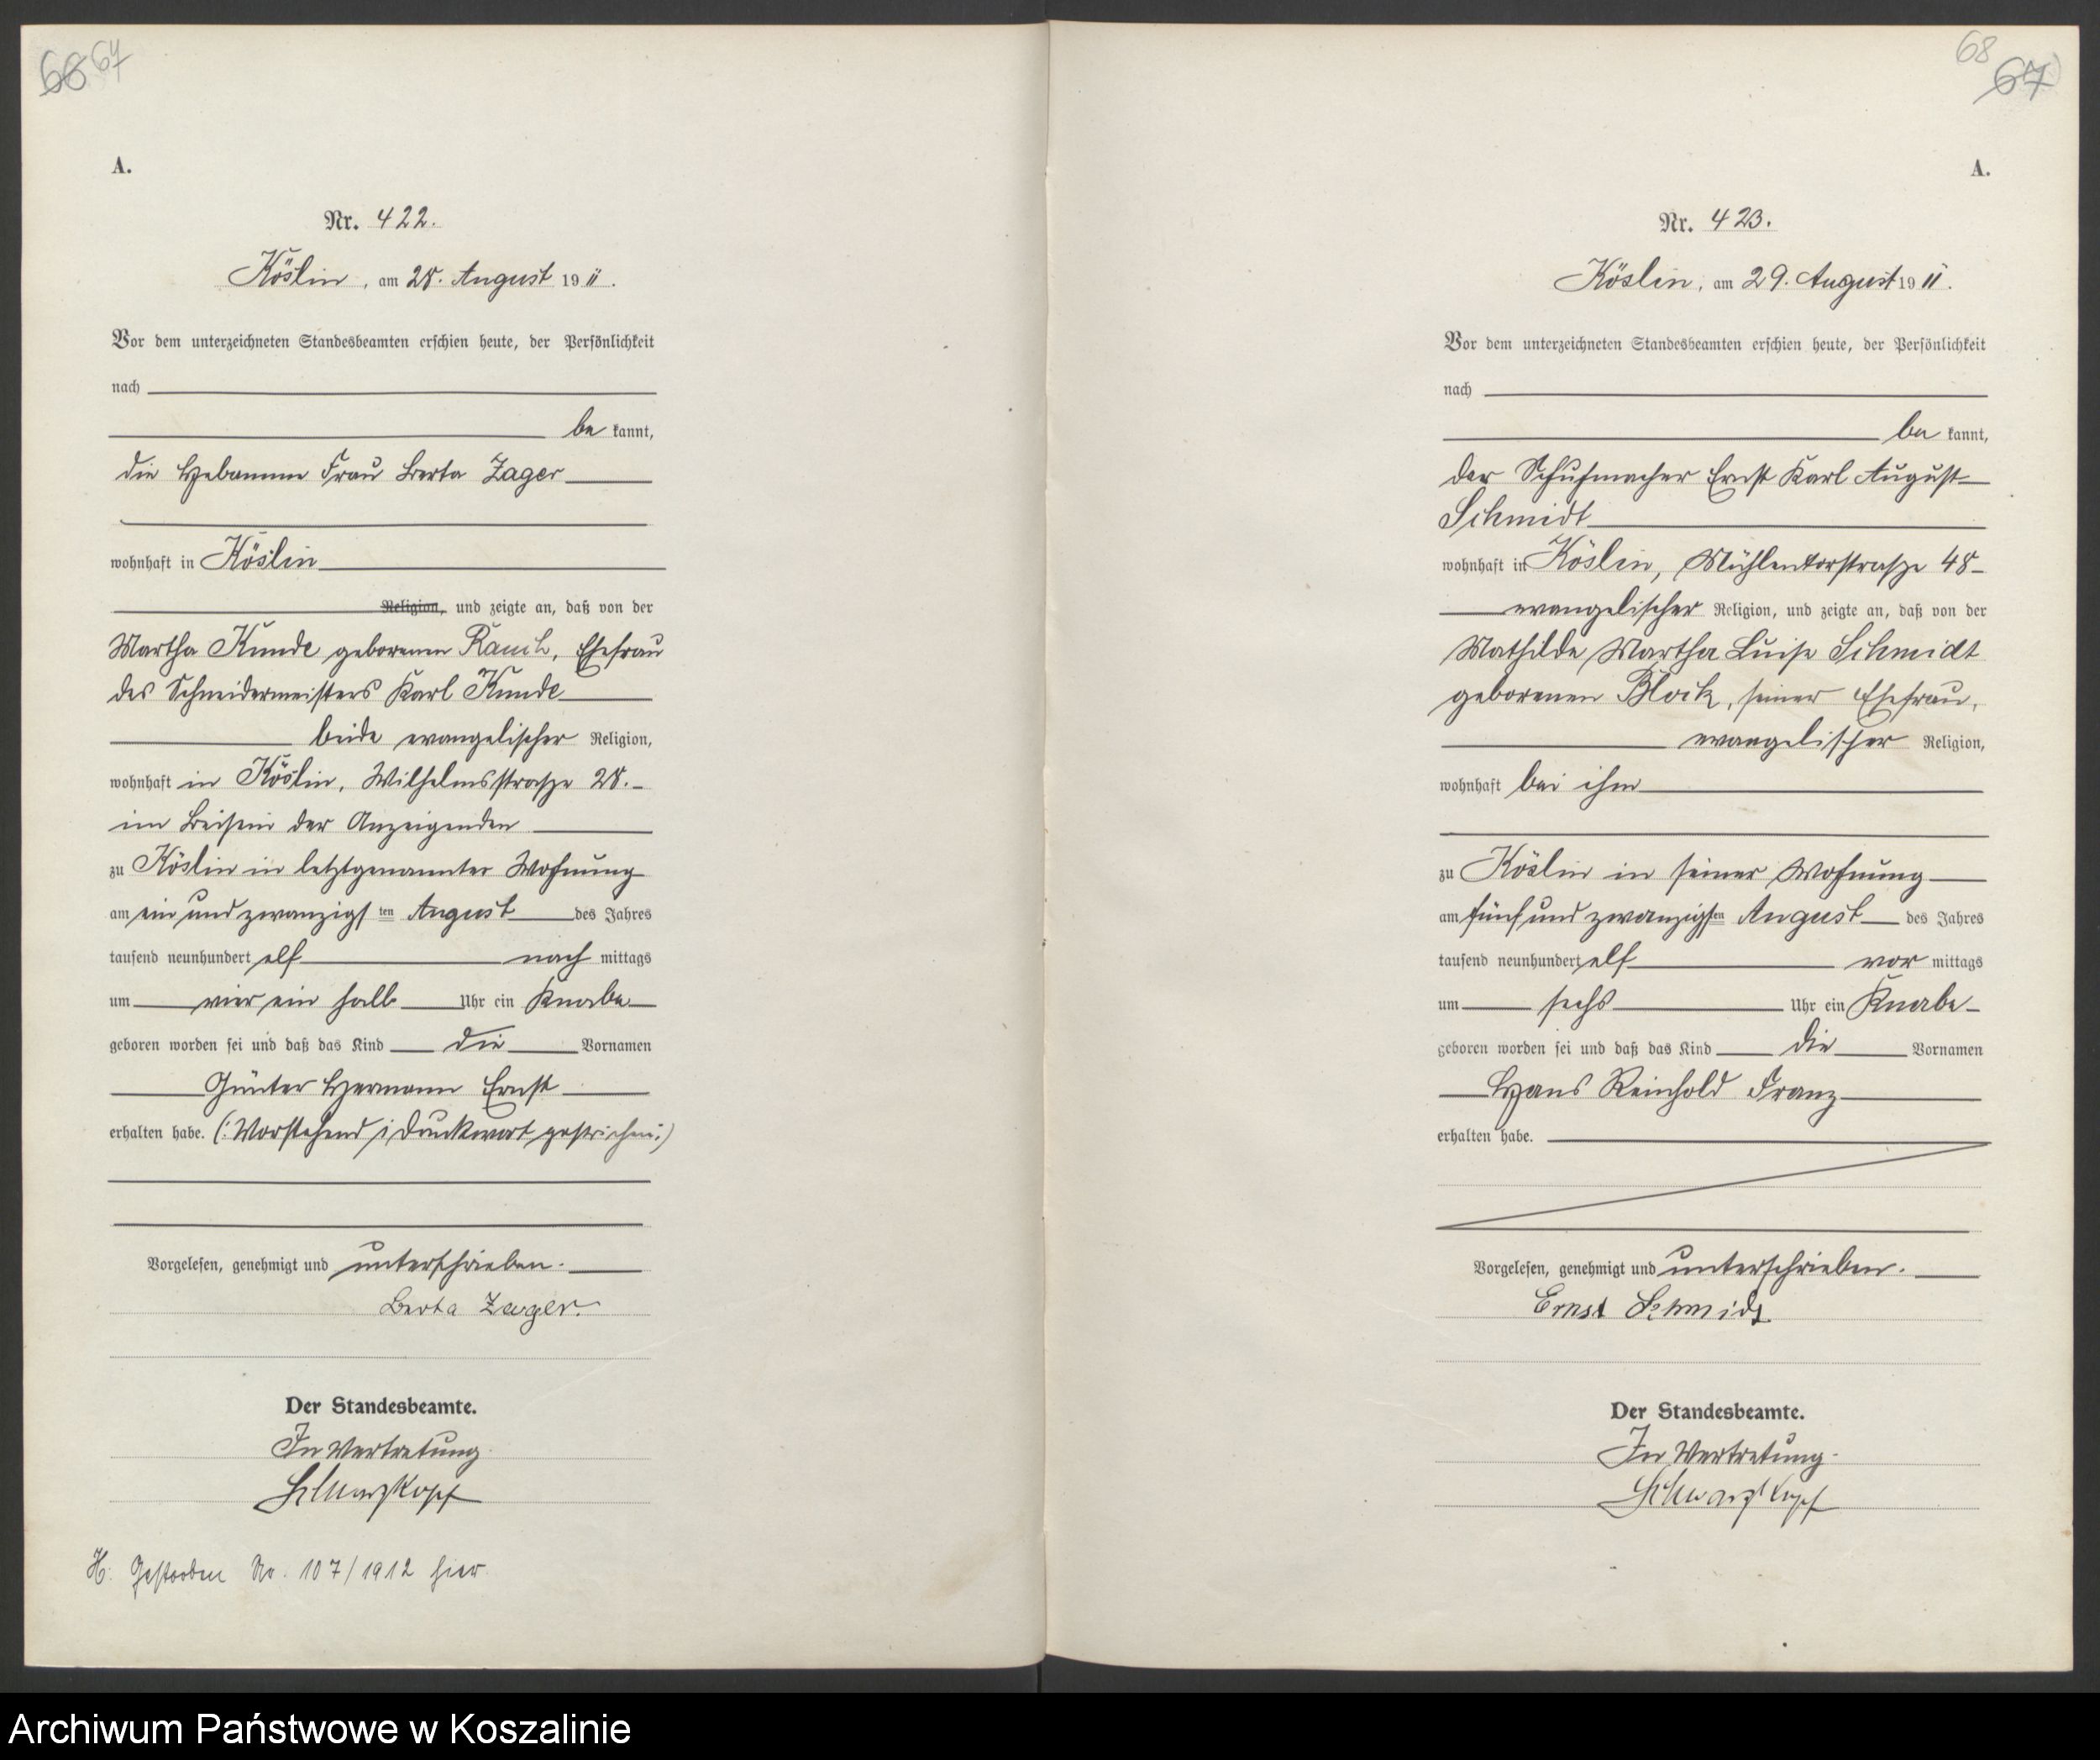 68 67
A.
Nr. 422.
Köslin, am 28. August 1911.
Vor dem unterzeichneten Standesbeamten erschien heute, der Persönlichkeit
nach
be kannt,
die Hebamme Frau Berta Zager
wohnhaft in Köslin
Religion, und zeigte an, daß von der
Martha Kunde geborenen Rauch, Ehefrau
des Schneidermeisters Karl Kunde
beide evangelischer Religion,
wohnhaft in Köslin, Wilhelmsstraße 28.
im Beisein der Anzeigenden
zu Köslin in letztgenannter Wohnung
am ein und zwanzigsten August des Jahres
tausend neunhundert elf nach mittags
um vier ein halb Uhr ein Knabe
geboren worden sei und daß das Kind die Vornamen
Günter Hermann Ernst
erhalten habe. (: Vorstehend 1 Druckwort gestrichen :)
Vorgelesen, genehmigt und unterschrieben.
Berta Zager.
Der Standesbeamte.
In Vertretung.
Schwarzkopf
H. Gestorben No. 107/1912 hier
68 67
A.
Nr. 423.
Köslin, am 29. August 1911.
Vor dem unterzeichneten Standesbeamten erschien heute, der Persönlichkeit
nach
be kannt,
der Schuhmacher Ernst Karl August
Schmidt
wohnhaft in Köslin, Mühlentorstraße 48
evangelischer Religion, und zeigte an, daß von der
Mathilde Martha Luise Schmidt
geborenen Block, seiner Ehefrau,
evangelischer Religion,
wohnhaft bei ihm
zu Köslin in seiner Wohnung
am fünf und zwanzigsten August des Jahres
tausend neunhundert elf vor mittags
um sechs Uhr ein Knabe
geboren worden sei und daß das Kind die Vornamen
Hans Reinhold Franz
erhalten habe.
Vorgelesen, genehmigt und unterschrieben.
Ernst Schmidt
Der Standesbeamte.
In Vertretung.
Schwarzkopf
Archiwum Państwowe w Koszalinie